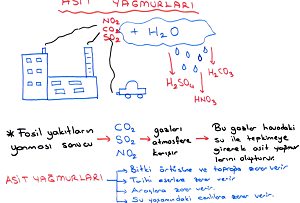 ASİT YAĞMURLARI
NO₂
CO₂
SO₂
+ H₂O
H₂SO₄
H₂CO₃
HNO₃
* Fosil yakıtların yanması sonucu
CO₂
SO₂
NO₂
gazları
atmosfere
karışır
Bu gazlar havadaki
su ile tepkimeye
girerek asit yağmur
larını oluşturur.
ASİT YAĞMURLARI
Bitki örtüsüne ve toprağa zarar verir.
Tarihi eserlere zarar verir
Araçlara zarar verir.
Su yaşamındaki canlılara zarar verir.